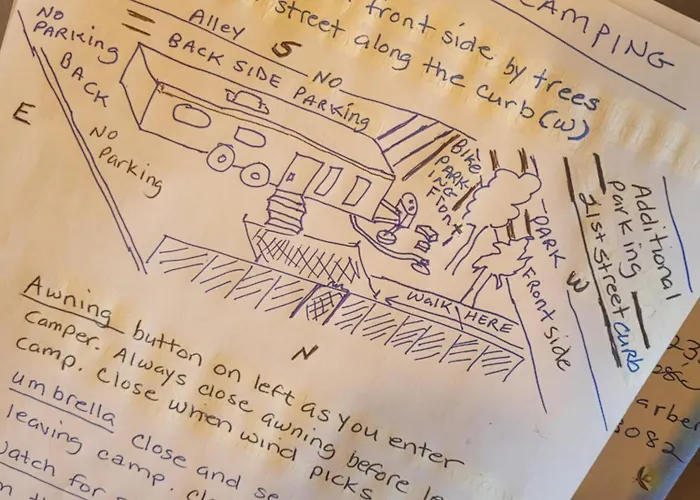 CAMPING
front side by trees
street along the curb (W)
Alley S
NO
BACK SIDE PARKING
NO
PARKING
BACK
E
NO
Parking
BIKE
PARK
ING
Front
PARK
Front side
W
Additional
parking
21st Street Curb
WALK HERE
N
Awning button on left as you enter
camper. Always close awning before
camp. Close when wind picks
umbrella close and
leaving camp.
for
082